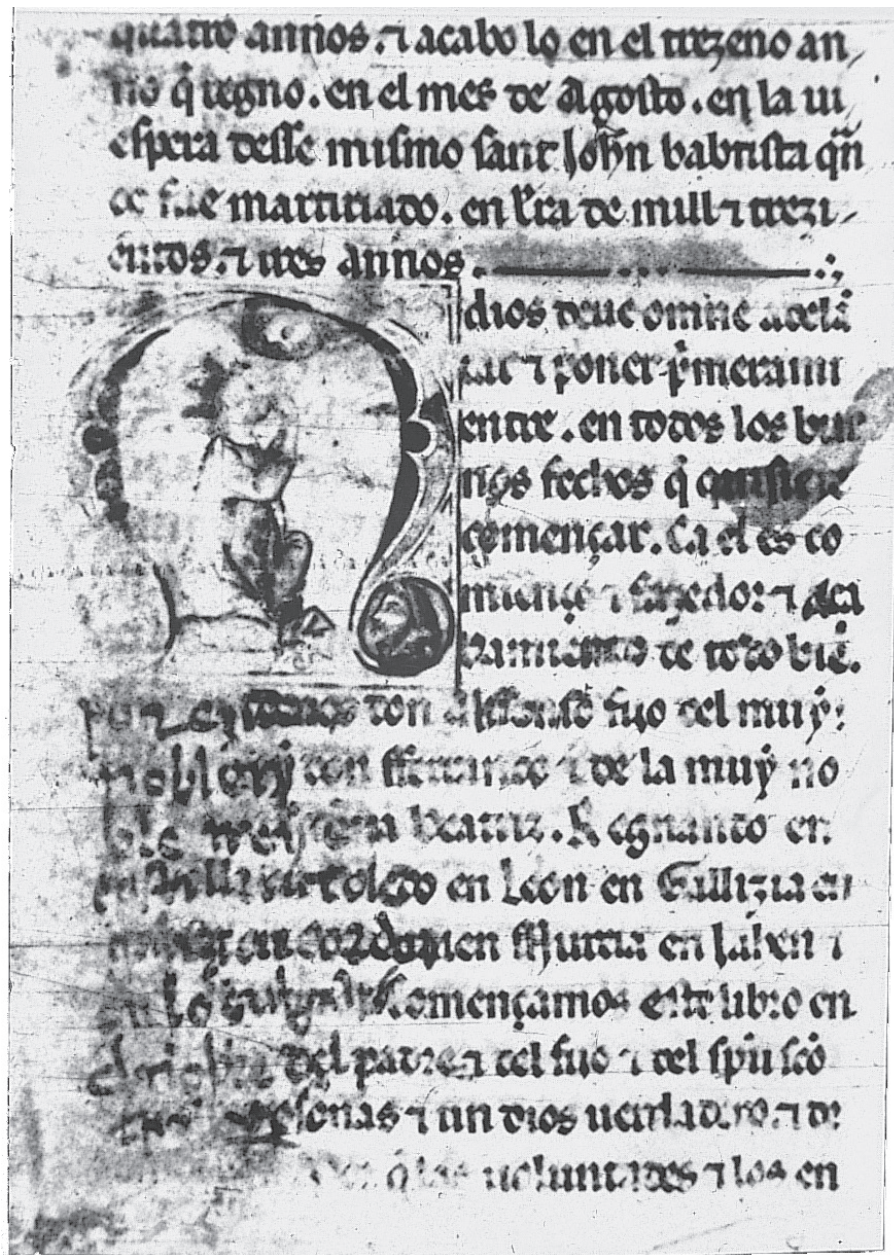 quatro annos. ⁊ acabo lo en el trezeno an
no q̃ regno. en el mes de Agosto. en la ui
espera desse mismo sant Joh̃n babtista qñ
do fue martiriado. en Era de mill ⁊ trezi
entos. ⁊ tres annos.
dios deue omne adelã
tar ⁊ poner p̃meram
entre. en todos los bue
nos fechos q̃ quisiere
començar. Ca el es co
mienço ⁊ fazedor ⁊ Aca
bamiento de todo biẽ.
don Alffonso fijo del muẏ
don fferrando ⁊ de la muẏ no
Beatriz. Regnando en
Toledo en Leon en Gallizia en
en Cordoua en Murcia en Jahen ⁊
Començamos este libro en
el del padre ⁊ del fijo ⁊ del sp̃u sc̃o
personas ⁊ un dios uerdadero. ⁊ de
q̃ las uoluntades ⁊ los en